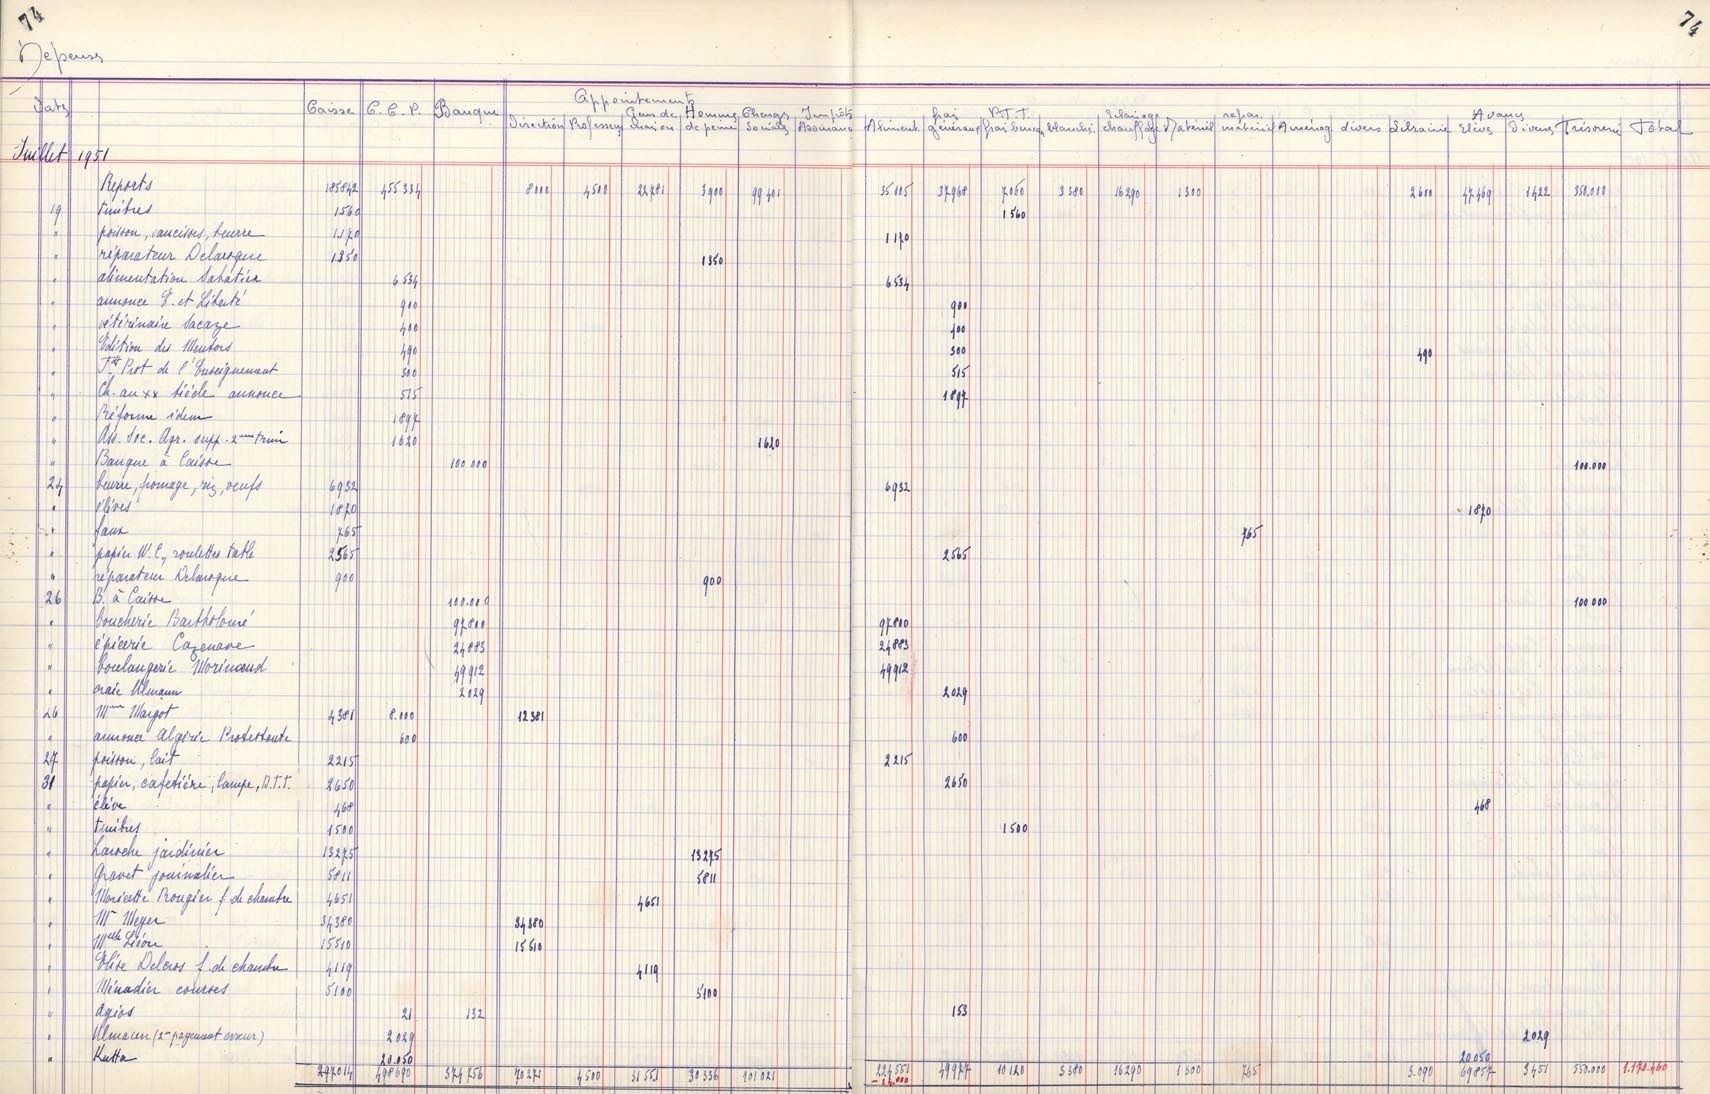 74 74
Dépenses
Appointements Avances
Dates Caisse C.C.P. Banque Direction Professeurs Gens de maison Hommes de peine Charges Sociales Impôts Assurances Aliment. frais généraux P.T.T. frais bureau blanchis. Eclairage chauffage Matériel répar. matériel Aménag. divers Librairie Elèves Divers Trésorerie Total
Juillet 1951
Reports 185842 455334 8000 4500 22781 3900 99401 35105 37968 7060 3380 16290 1300 2600 47469 1422 350.000
19 timbres 1560 1560
" poisson, saucisses, beurre 1170 1170
" réparateur Delarogue 1350 1350
" alimentation Sabatier 6534 6534
" annonce E. et Liberté 900 900
" vétérinaire Sacaze 400 400
" Edition des Mentors 490 300 490
" Prot de l'Enseignement 300 515
" Ch. au XX siècle annonce 515 1897
" Réforme idem 1897
" Ass. Soc. Agr. supp. 2ème trim 1620 1620
" Banque à Caisse 100.000 100.000
24 beurre, fromage, riz, oeufs 6932 6932
" élèves 1870 1870
" faux 765 765
" papier W.C, roulettes table 2565 2565
" réparateur Delarogue 900 900
26 B. à Caisse 100.000 100.000
" boucherie Bartholomé 97800 97800
" épicerie Cazenave 24883 24883
" boulangerie Morinaud 49912 49912
" craie Ulmann 2029 2029
26 Mme Margot 4381 8.000 12381
" annonce Algérie Protestante 600 600
27 poisson, lait 2215 2215
31 papier, cafetière, lampe, P.T.T. 2650 2650
" élève 468 468
" timbres 1500 1500
" Laroche jardinier 13275 13275
" Gravet journalier 5811 5811
" Moricette Rougier f. de chambre 4651 4651
" Mr Meyer 34380 34380
" Melle Liéon 15510 15510
" Elise Delcros f. de chambre 4119 4119
" Ménadier courses 5100 5100
" Agios 21 132 153
" Ulmann (2me payement erreur) 2029 2029
" Kutta 20.050 20050
297014 498690 374756 70271 4500 31551 30336 101021 224551 49977 10120 3380 16290 1300 765 3.090 69857 3451 550.000 1.170.460